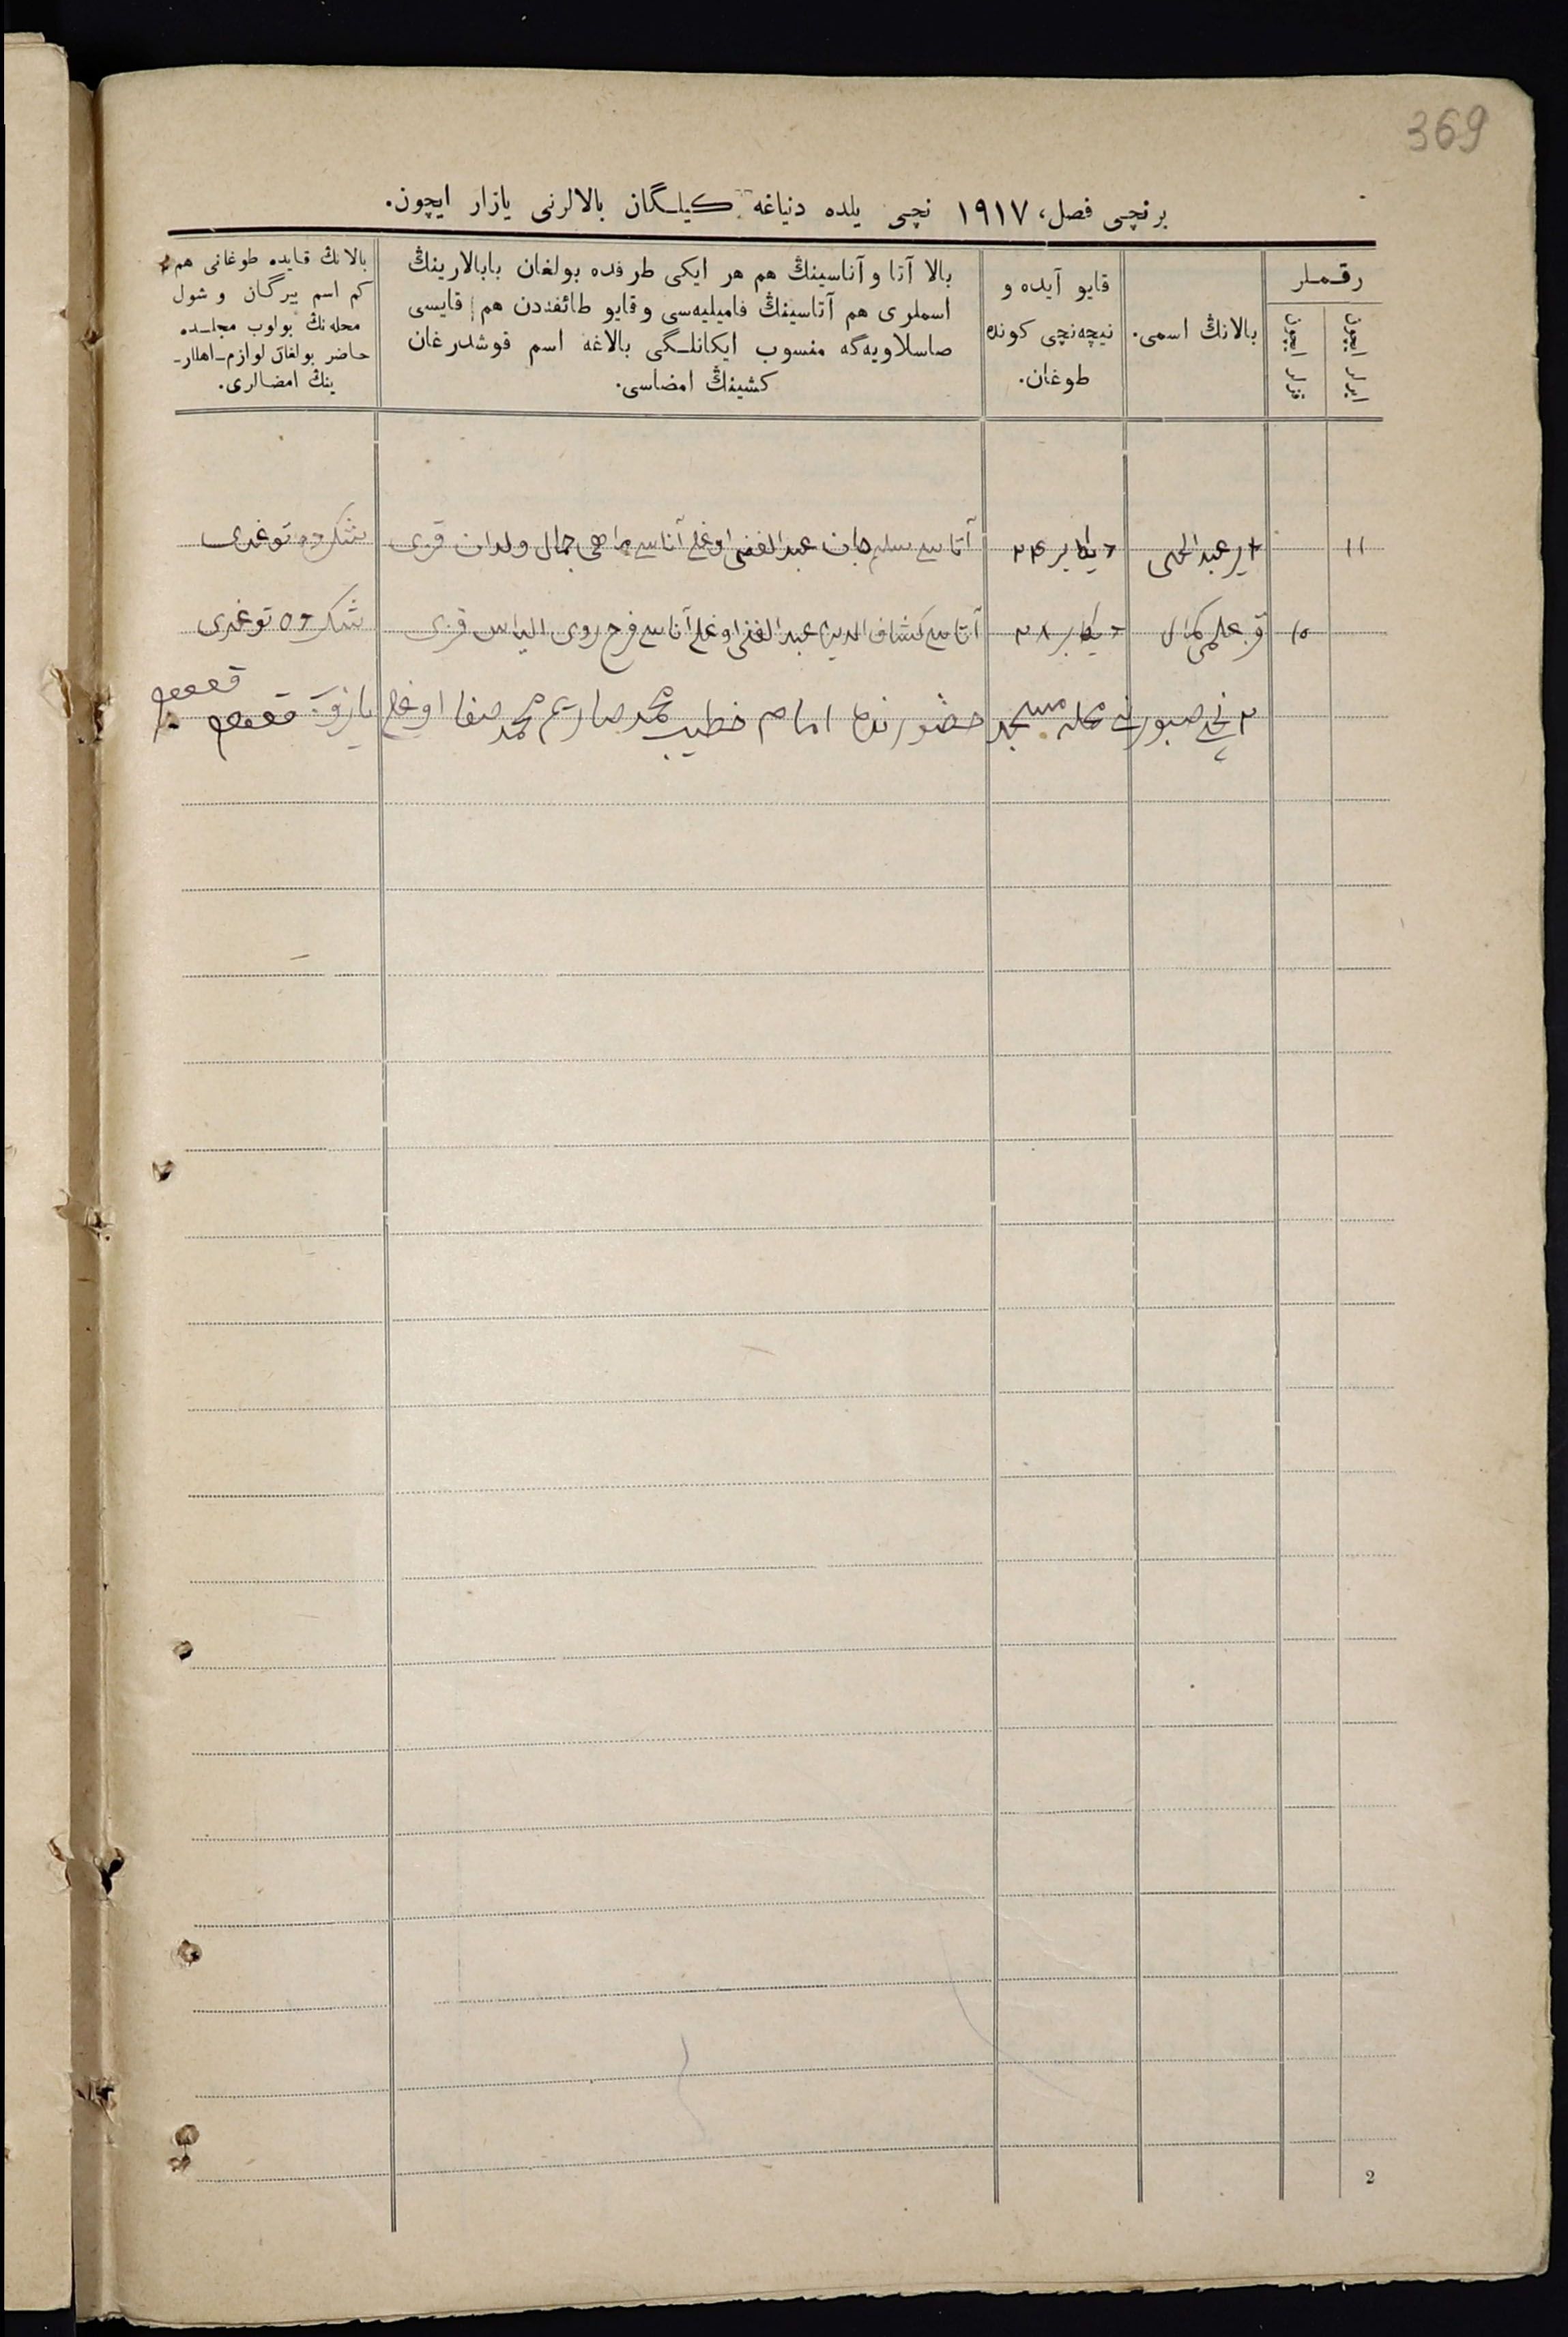 369
برنچی فصل، ١٩١٧ نچی یلده دنیاغه کیلگان بالالرنی یازار ایچون.
رقملر
ایرلر ایچون
قزلر ایچون
بالانڭ اسمی.
قایو آیده و
نیچه‌نچی کونده
طوغان.
بالا آتا و آناسینڭ هم هر ایکی طرفده بولغان بابالارینڭ
اسملری هم آتاسینڭ فامیلیه‌سی و قایو طائفه‌دن هم قایسی
صاسلاویه‌گه منسوب ایکانلگی بالاغه اسم قوشدرغان
کشینڭ امضاسی.
بالانڭ قایده طوغانی هم
کم اسم بیرگان و شول
محله‌نڭ بولوب مجلسده
حاضر بولغان لوازم-اهللر-
ینڭ امضالری.
١١ ایر عبدالحی دیکابر ٢٤ آتاسی سلیم جان عبدالغنی اوغلی آناسی ماهی جمال ولدان قزی توغدی
١٥ قز علمی کمال دیکابر ٢٨ آتاسی کشاف الدین عبدالغنی اوغلی آناسی الیاس قزی توغدی
٢ نچی محله مسجد حضورنده امام خطیب محمد صابر محمد صفا اوغلی
2